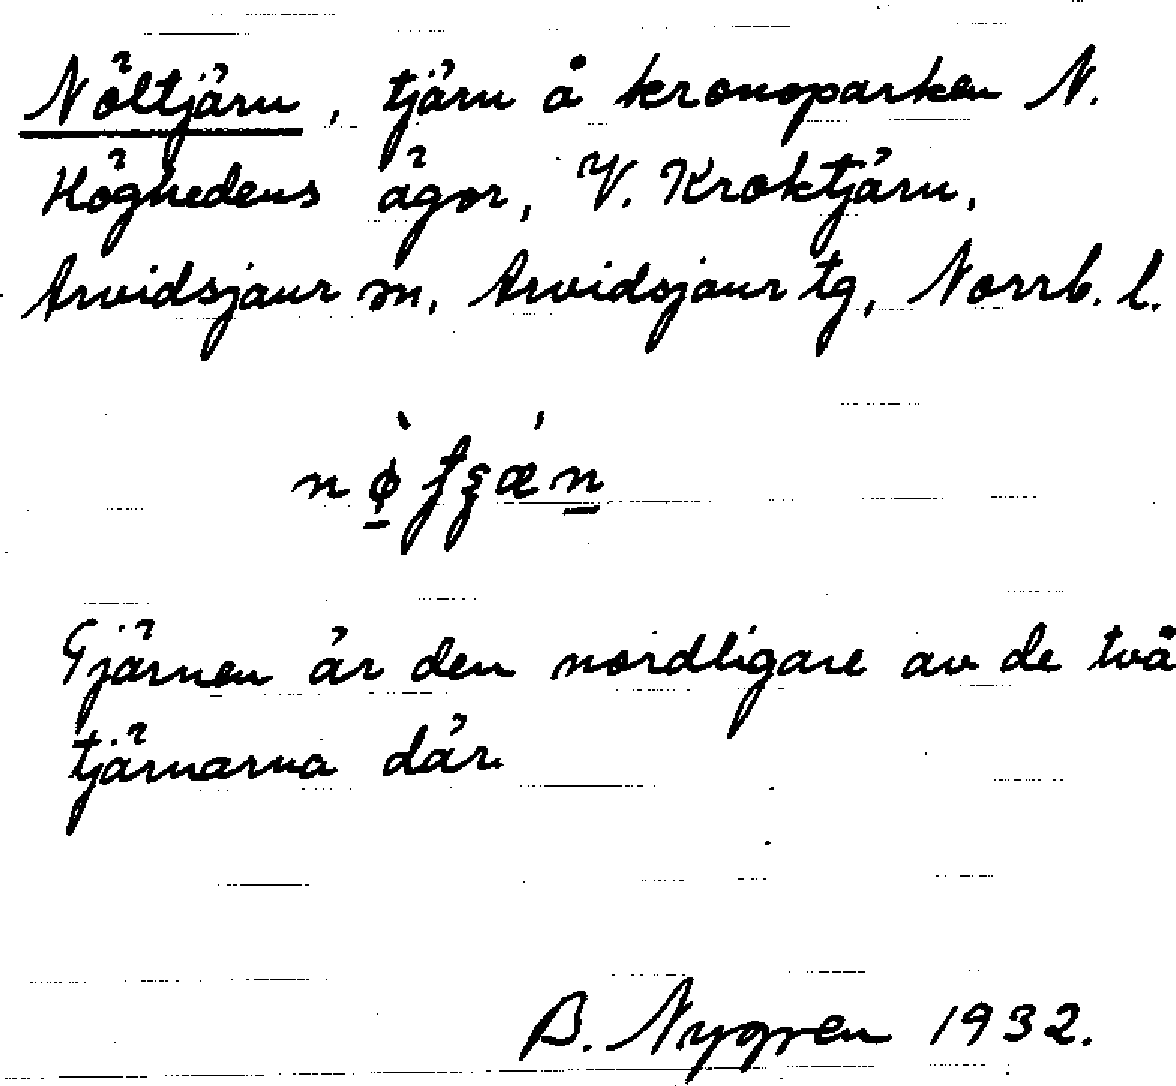 Nöltjärn, tjärn å kronoparken N.
Höghedens ägor, V. Kroktjärn,
Arvidsjaur sn, Arvidsjaur tg, Norrb. l.
Tjärnen är den nordligare av de två
tjärnarna där.
B. Nygren 1932.